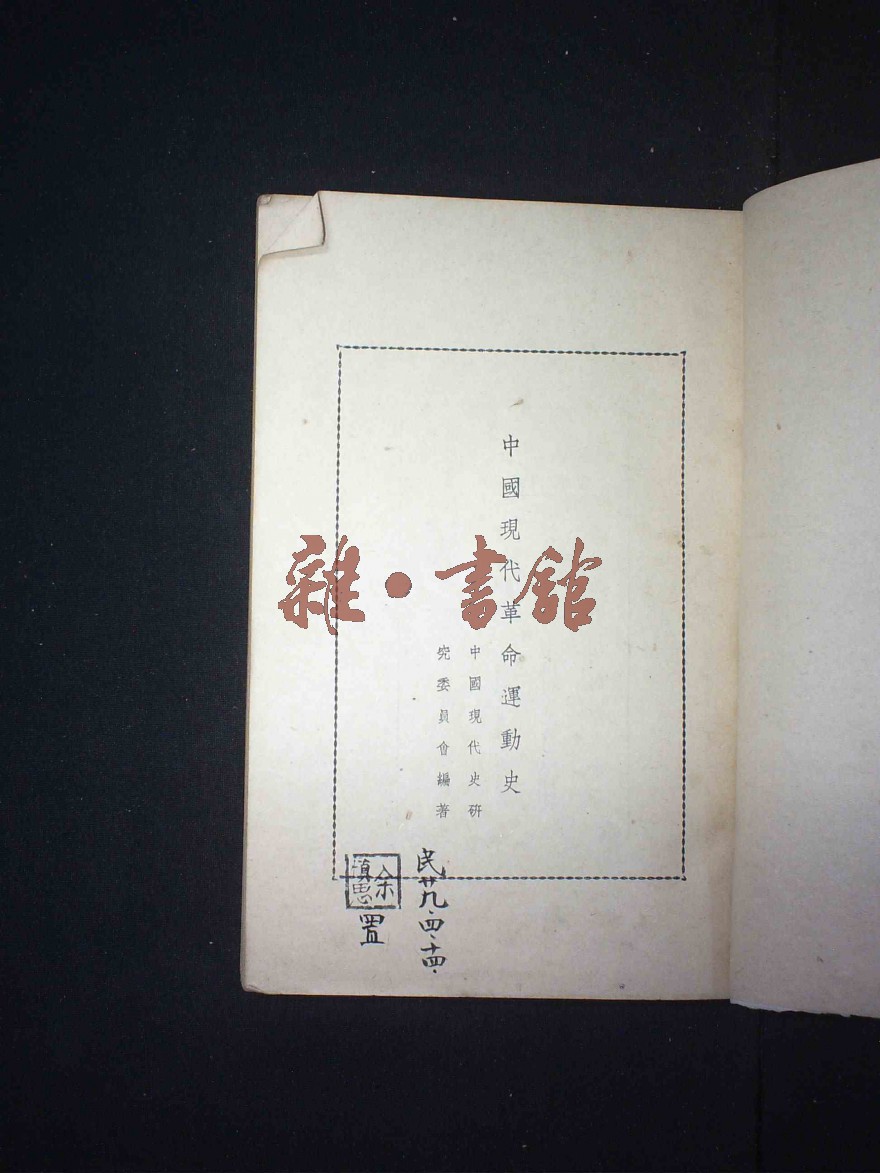 中國現代革命運動史
中國現代史研
究委員會編著
民廿九、四、十四、
余
置
雜·書館